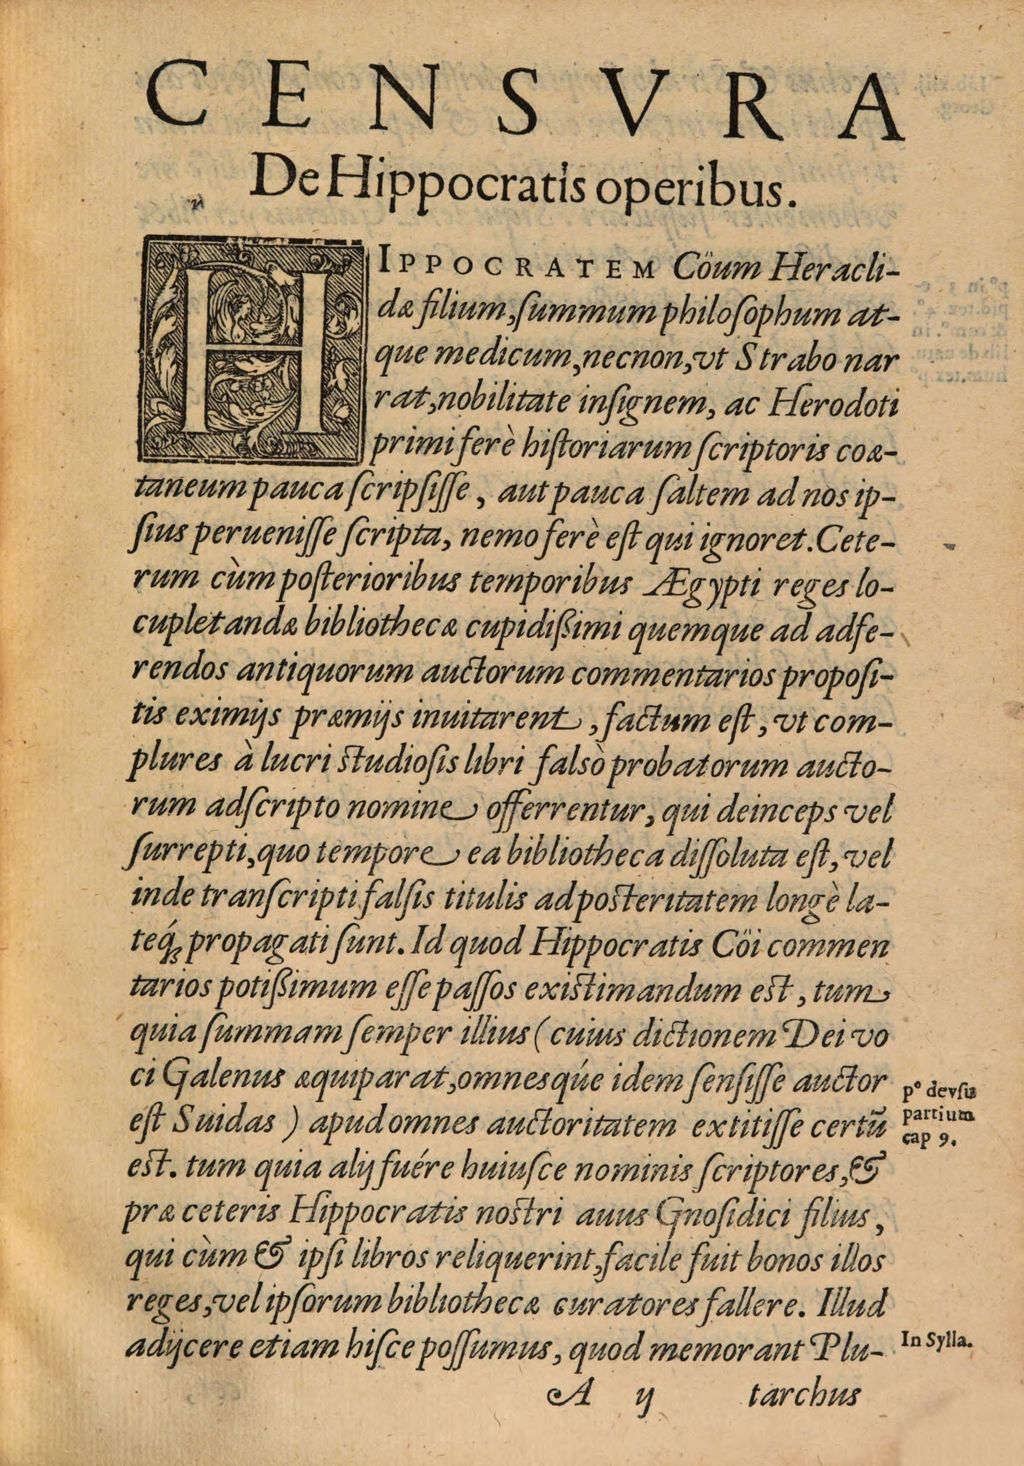 CENSVRA
De Hippocratis operibus.
HIPPOCRATEM Cöum Heracli-
dæ filium, ſummum philoſophum at-
que medicum, necnon, vt Strabo nar
rat, nobilitate inſignem, ac Herodoti
primi ferè hiſtoriarum ſcriptoris coæ-
taneum pauca ſcripſiſſe, aut pauca ſaltem ad nos ip-
ſius perueniſſe ſcripta, nemo ferè eſt qui ignoret. Cete-
rum cùm poſterioribus temporibus Ægypti reges lo-
cupletandæ bibliothecæ cupidiſsimi quemque ad adfe-
rendos antiquorum auctorum commentarios propoſi-
tis eximijs præmijs inuitarent, factum eſt, vt com-
plures à lucri ſtudioſis libri falsò probatorum aucto-
rum adſcripto nomine offerrentur, qui deinceps vel
ſurrepti, quo tempore ea bibliotheca diſſoluta eſt, vel
inde tranſcripti falſis titulis ad poſteritatem longè la-
teq́ꝫ propagati ſunt. Id quod Hippocratis Cöi commen
tarios potiſsimum eſſe paſſos exiſtimandum eſt, tum
quia ſummam ſemper illius (cuius dictionem Dei vo
ci Galenus æquiparat, omnesqúe idem ſenſiſſe auctor
eſt Suidas) apud omnes auctoritatem extitiſſe certũ
eſt. tum quia alij fuére huiuſce nominis ſcriptores, &
præ ceteris Hippocratis noſtri auus Gnoſidici filius,
qui cùm & ipſi libros reliquerint, facile fuit bonos illos
reges, vel ipſorum bibliothecæ curatores fallere. Illud
adijcere etiam hiſce poſſumus, quod memorant Plu-
A ij tarchus
p° de vſu
partium
cap 9.
In Sylla.